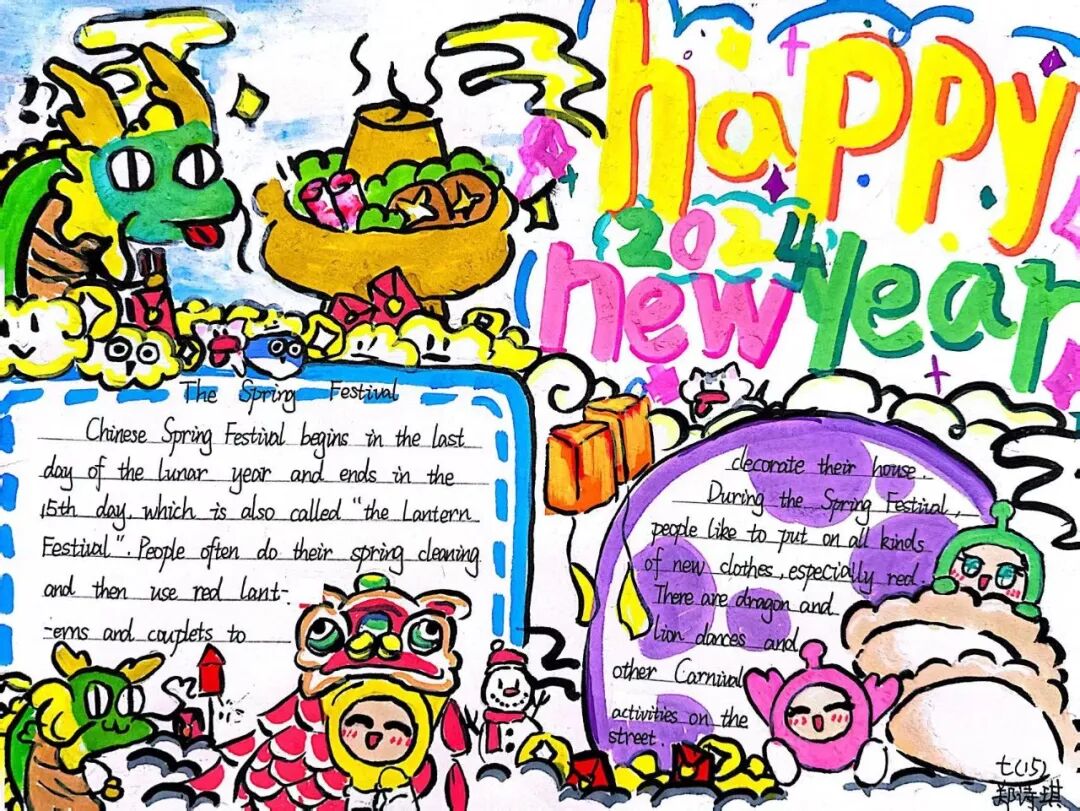 happy
2024
new year
The Spring Festival
Chinese Spring Festival begins in the last
day of the lunar year and ends in the
15th day, which is also called "the Lantern
Festival". People often do their spring cleaning
and then use red lant-
-erns and couplets to
decorate their house.
During the Spring Festival,
people like to put on all kinds
of new clothes, especially red.
There are dragon and
lion dances and
other Carnival
activities on the
street.
七(15)
郑诗琪